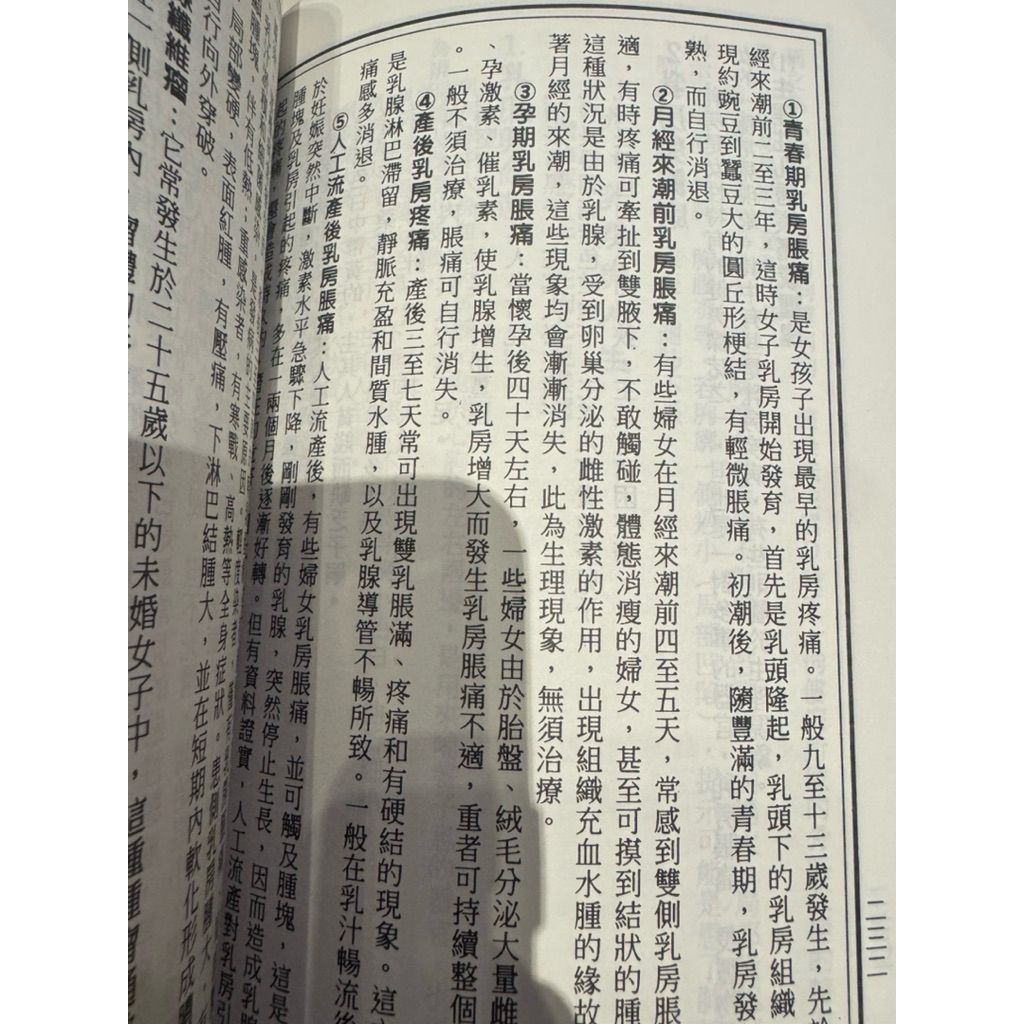 ①青春期乳房脹痛：是女孩子出現最早的乳房疼痛。一般九至十三歲發生，先於
經來潮前二至三年，這時女子乳房開始發育，首先是乳頭隆起，乳頭下的乳房組織
現約豌豆到蠶豆大的圓丘形梗結，有輕微脹痛。初潮後，隨豐滿的青春期，乳房發
熟，而自行消退。
②月經來潮前乳房脹痛：有些婦女在月經來潮前四至五天，常感到雙側乳房脹
適，有時疼痛可牽扯到雙腋下，不敢觸碰，體態消瘦的婦女，甚至可摸到結狀的腫
這種狀況是由於乳腺，受到卵巢分泌的雌性激素的作用，出現組織充血水腫的緣故
著月經的來潮，這些現象均會漸漸消失，此為生理現象，無須治療。
③孕期乳房脹痛：當懷孕後四十天左右，一些婦女由於胎盤、絨毛分泌大量雌
、孕激素、催乳素，使乳腺增生，乳房增大而發生乳房脹痛不適，重者可持續整個
。一般不須治療，脹痛可自行消失。
④產後乳房疼痛：產後三至七天常可出現雙乳脹滿、疼痛和有硬結的現象。這
是乳腺淋巴滯留，靜脈充盈和間質水腫，以及乳腺導管不暢所致。一般在乳汁暢流後
痛感多消退。
⑤人工流產後乳房脹痛：人工流產後，有些婦女乳房脹痛，並可觸及腫塊，這是
於妊娠突然中斷，激素水平急驟下降，剛剛發育的乳腺，突然停止生長，因而造成乳腺
腫塊及乳房引起的疼痛，多在一兩個月後逐漸好轉。但有資料證實，人工流產對乳房引
伴有低熱；重感染者，有寒戰、高熱等全身症狀。患側乳房腫大，
局部變硬，表面紅腫，有壓痛，下淋巴結腫大，並在短期內軟化形成膿
行向外穿破。
纖維瘤：它常發生於二十五歲以下的未婚女子中，這種腫瘤
側乳房內
二三二